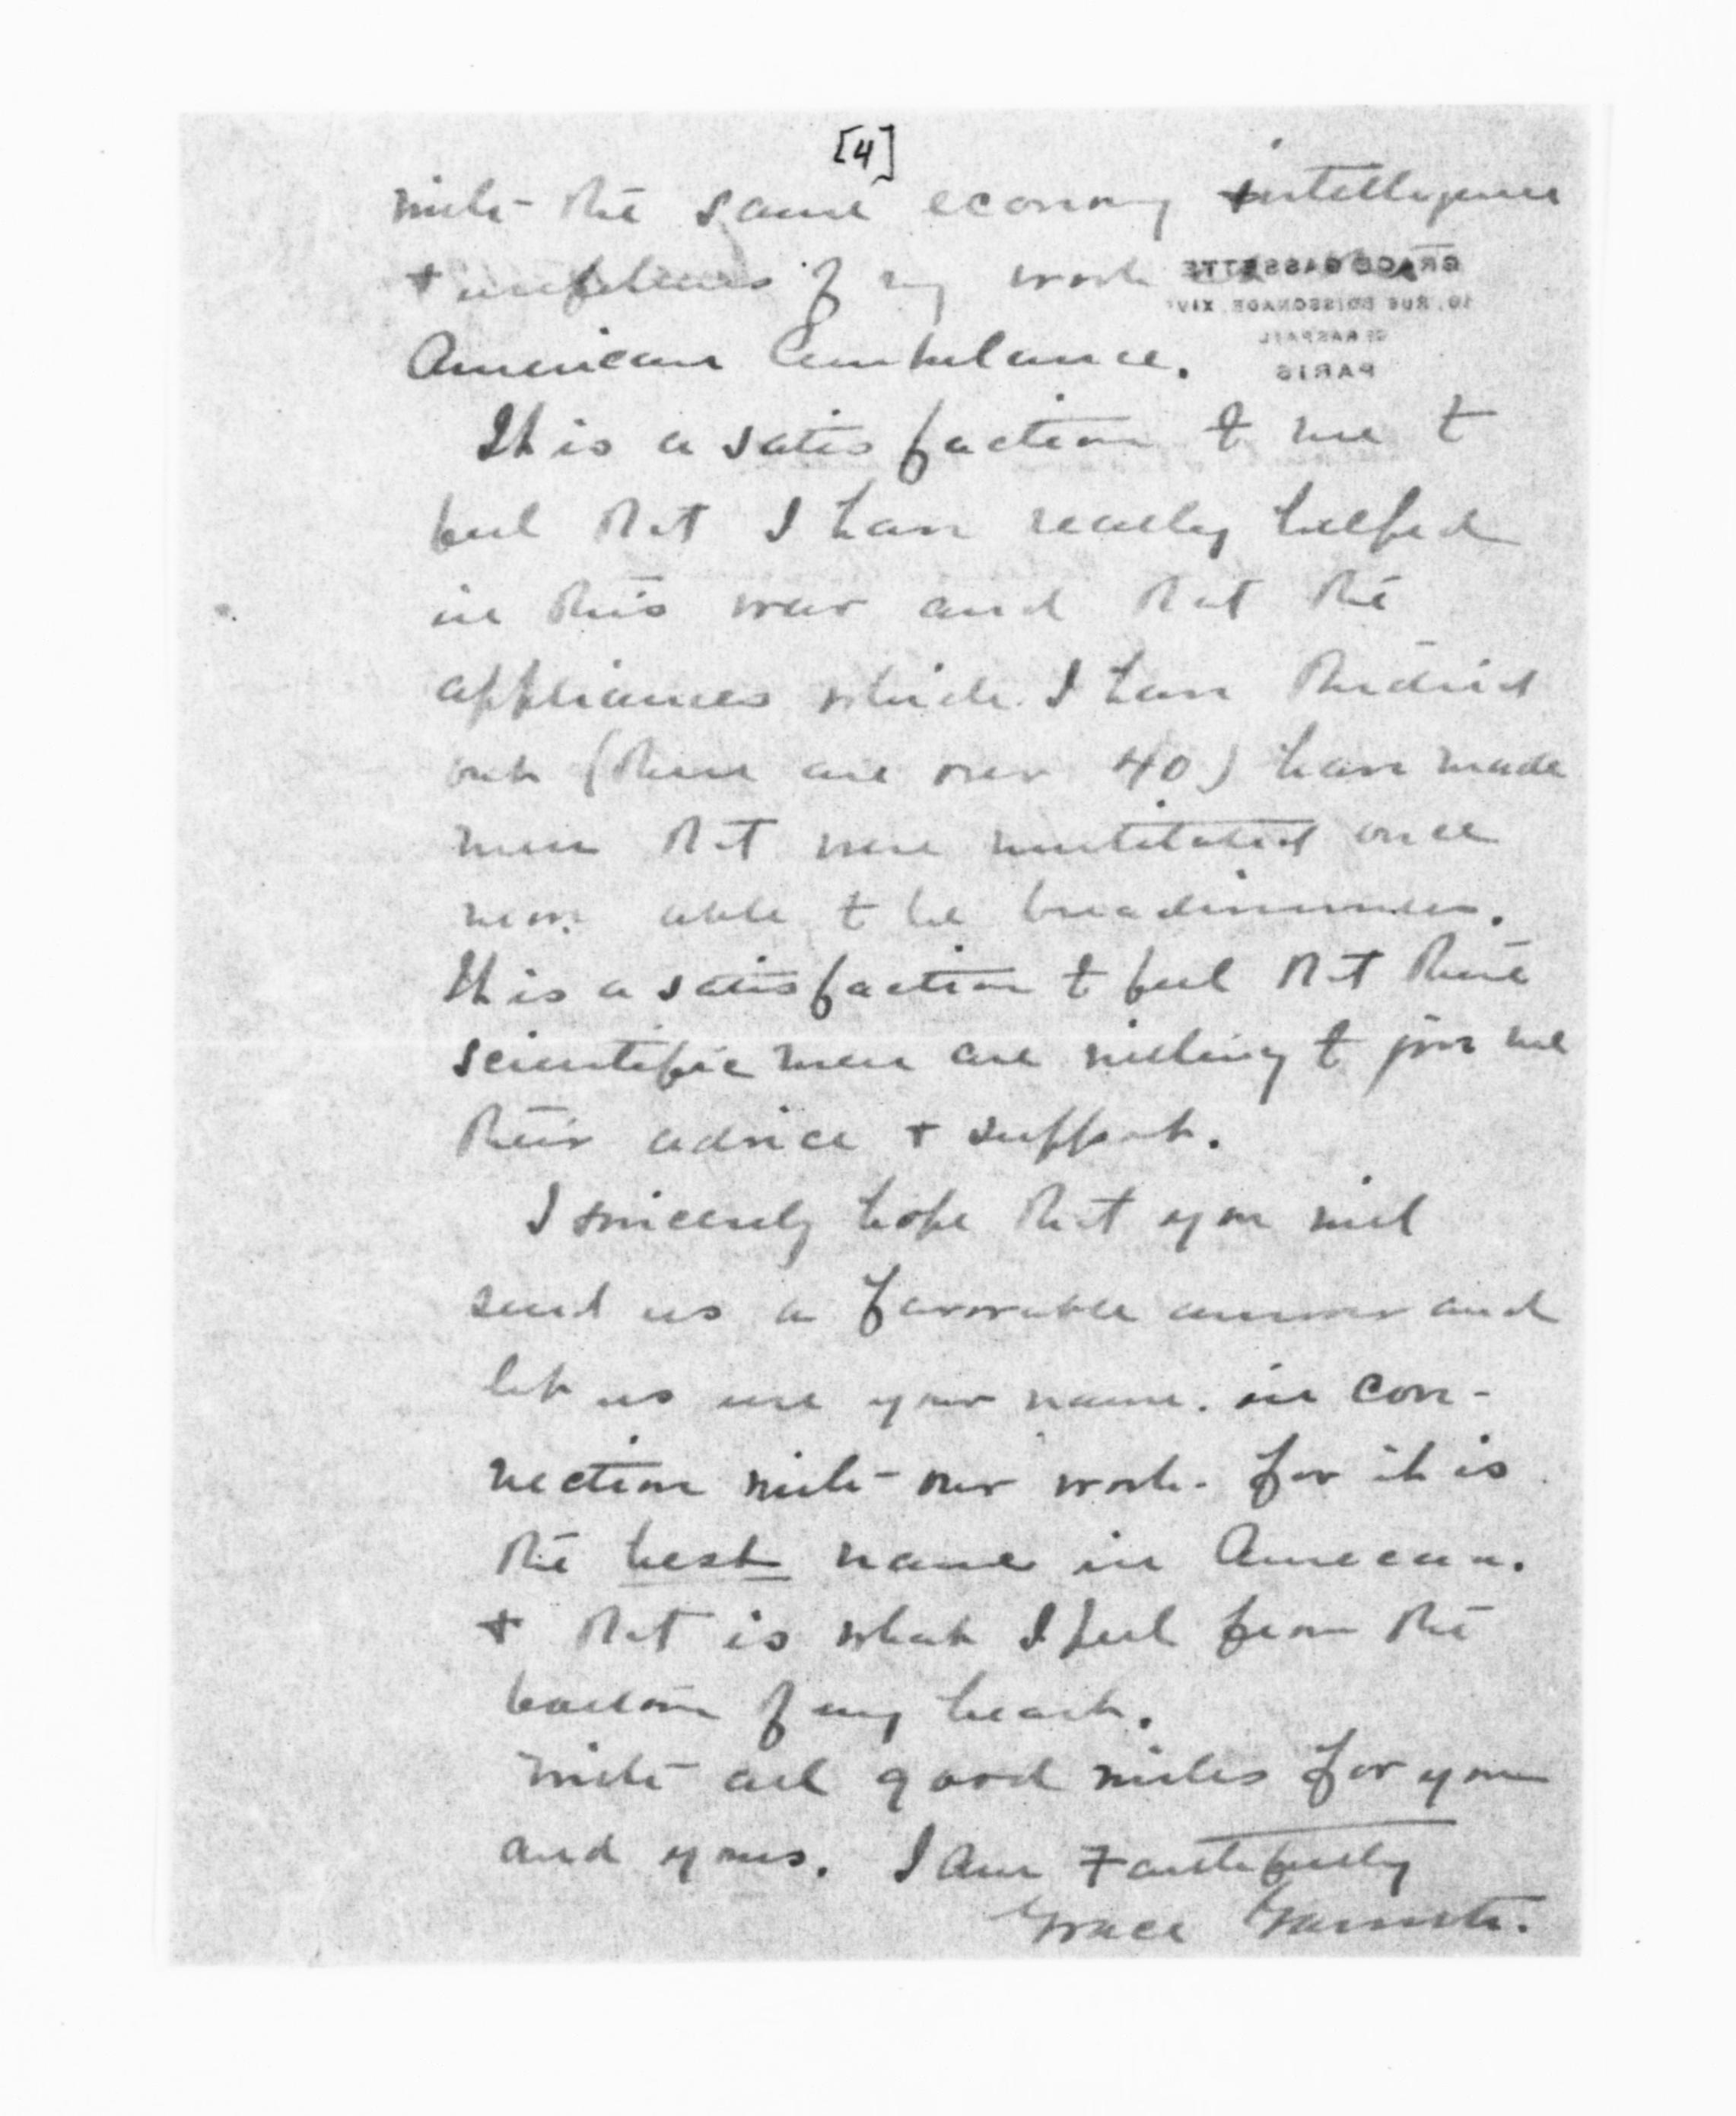 [4]
with the same economy intelligence
+ usefulness of my work
American Ambulance.
GRACE GASSETTE
10, RUE BOISSONADE, XIVe
RASPAIL
PARIS
It is a satisfaction to me to
feel that I have really helped
in this war and that the
appliances which I have studied
out (there are over 40) have made
men that were mutilated once
more able to be breadwinners.
It is a satisfaction to feel that these
scientific men are willing to give me
their advice + support.
I sincerely hope that you will
send us a favorable answer and
let us use your name. in con-
nection with our work. for it is
the best name in America.
+ that is what I feel from the
bottom of my heart.
With all good wishes for you
and yours. I am Faithfully
Grace Gassette.